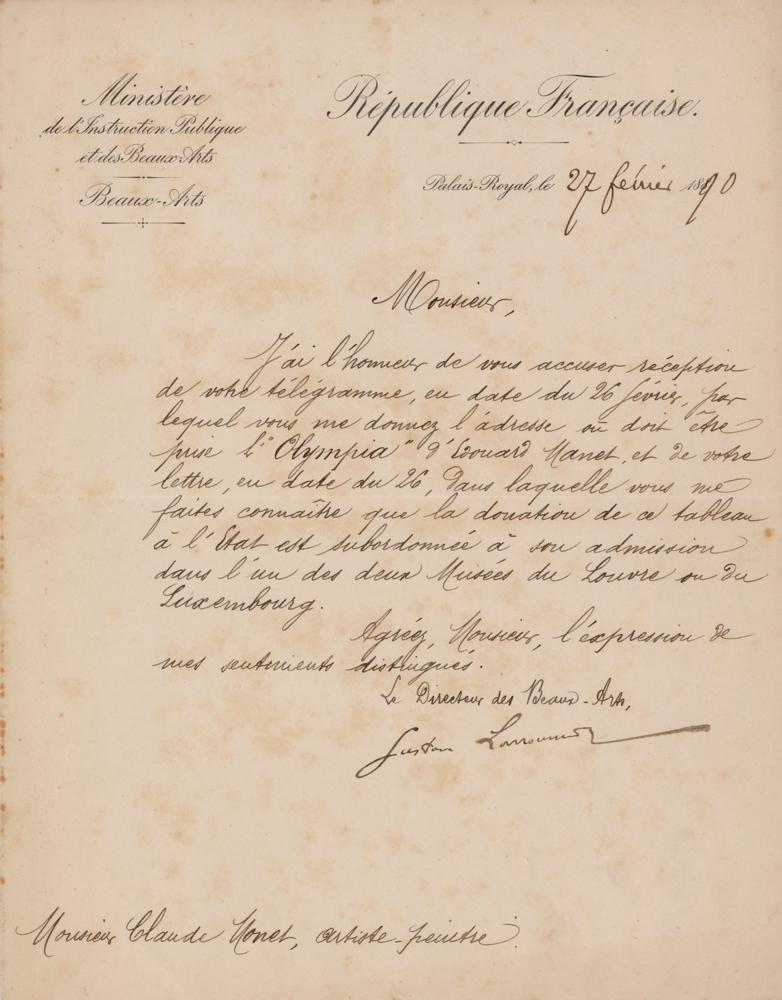 Ministère
de l'Instruction Publique
et des Beaux-Arts
Beaux-Arts
République Française.
Palais-Royal, le 27 février 1890
Monsieur,
J'ai l'honneur de vous accuser réception
de votre télégramme, en date du 26 février, par
lequel vous me donnez l'adresse où doit être
prise l'"Olympia" d'Edouard Manet, et de votre
lettre, en date du 26, dans laquelle vous me
faites connaître que la donation de ce tableau
à l'Etat est subordonnée à son admission
dans l'un des deux Musées du Louvre ou du
Luxembourg.
Agréez, Monsieur, l'expression de
mes sentiments distingués.
Le Directeur des Beaux-Arts,
Gustave Larroumet
Monsieur Claude Monet, artiste-peintre.